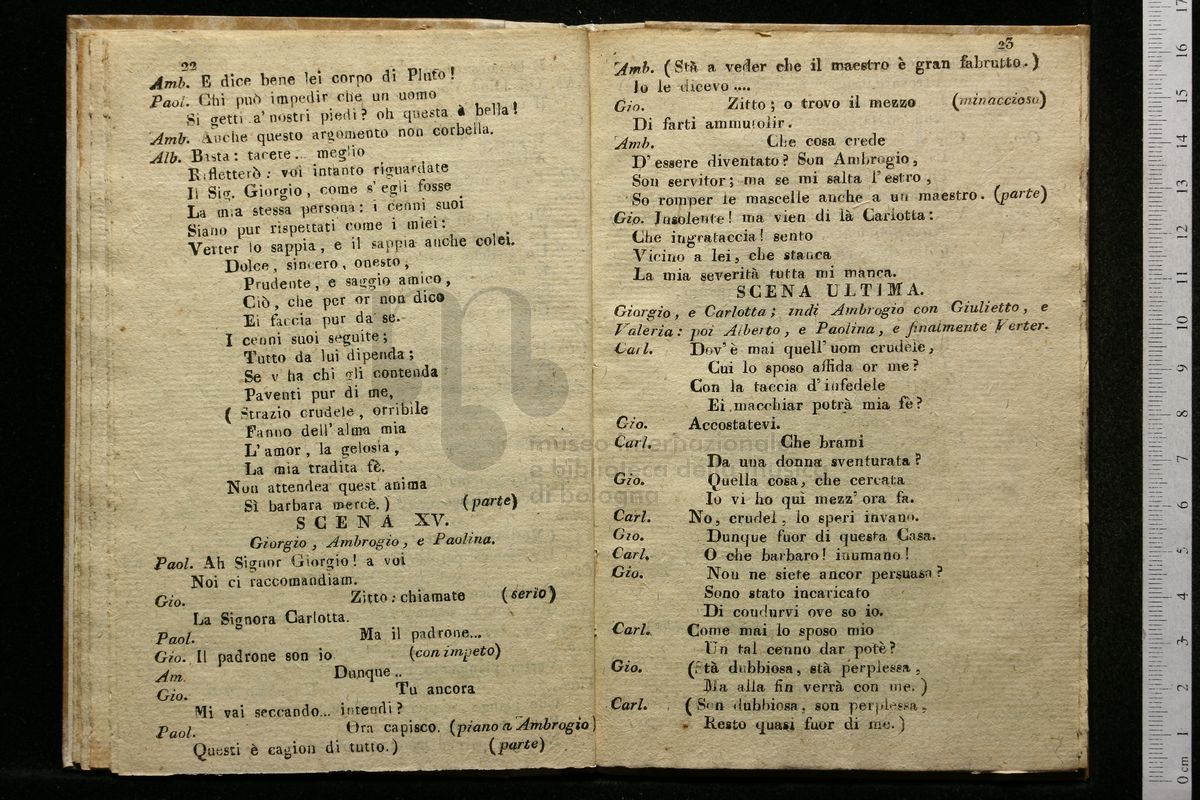 22
Amb. E dice bene lei corpo di Pluto!
Paol. Chi può impedir che un uomo
Si getti a' nostri piedi? oh questa è bella!
Amb. Anche questo argomento non corbella.
Alb. Basta: tacete... meglio
Rifletterò: voi intanto riguardate
Il Sig. Giorgio, come s' egli fosse
La mia stessa persona: i cenni suoi
Siano pur rispettati come i miei:
Verter lo sappia, e il sappia anche colei.
Dolce, sincero, onesto,
Prudente, e saggio amico,
Ciò, che per or non dico
Ei faccia pur da se.
I cenni suoi seguite;
Tutto da lui dipenda;
Se v' ha chi gli contenda
Paventi pur di me,
( Strazio crudele, orribile
Fanno dell' alma mia
L' amor, la gelosia,
La mia tradita fè.
Non attendea quest anima
Sì barbara mercè. ) (parte)
SCENA XV.
Giorgio, Ambrogio, e Paolina.
Paol. Ah Signor Giorgio! a voi
Noi ci raccomandiam.
Gio. Zitto: chiamate (serio)
La Signora Carlotta.
Paol. Ma il padrone...
Gio. Il padrone son io. (con impeto)
Am. Dunque..
Gio. Tu ancora
Mi vai seccando... intendi?
Paol. Ora capisco. (piano a Ambrogio)
Questi è cagion di tutto.) (parte)
23
Amb. (Stà a veder che il maestro è gran fabrutto.)
Io le dicevo ....
Gio. Zitto; o trovo il mezzo (minaccioso)
Di farti ammutolir.
Amb. Che cosa crede
D' essere diventato? Son Ambrogio,
Son servitor; ma se mi salta l' estro,
So romper le mascelle anche a un maestro. (parte)
Gio. Insolente! ma vien di là Carlotta:
Che ingrataccia! sento
Vicino a lei, che stanca
La mia severità tutta mi manca.
SCENA ULTIMA.
Giorgio, e Carlotta; indi Ambrogio con Giulietto, e
Valeria: poi Alberto, e Paolina, e finalmente Verter.
Carl. Dov' è mai quell' uom crudele,
Cui lo sposo affida or me?
Con la taccia d' infedele
Ei macchiar potrà mia fè?
Gio. Accostatevi.
Carl. Che brami
Da una donna sventurata?
Gio. Quella cosa, che cercata
Io vi ho quì mezz' ora fa.
Carl. No, crudel, lo speri invano.
Gio. Dunque fuor di questa Casa.
Carl. O che barbaro! inumano!
Gio. Non ne siete ancor persuasa?
Sono stato incaricato
Di condurvi ove so io.
Carl. Come mai lo sposo mio
Un tal cenno dar potè?
Gio. (Stà dubbiosa, stà perplessa,
Ma alla fin verrà con me. )
Carl. ( Son dubbiosa, son perplessa,
Resto quasi fuor di me. )
museo internazionale
e biblioteca della musica
di bologna
0 cm 1 2 3 4 5 6 7 8 9 10 11 12 13 14 15 16 17